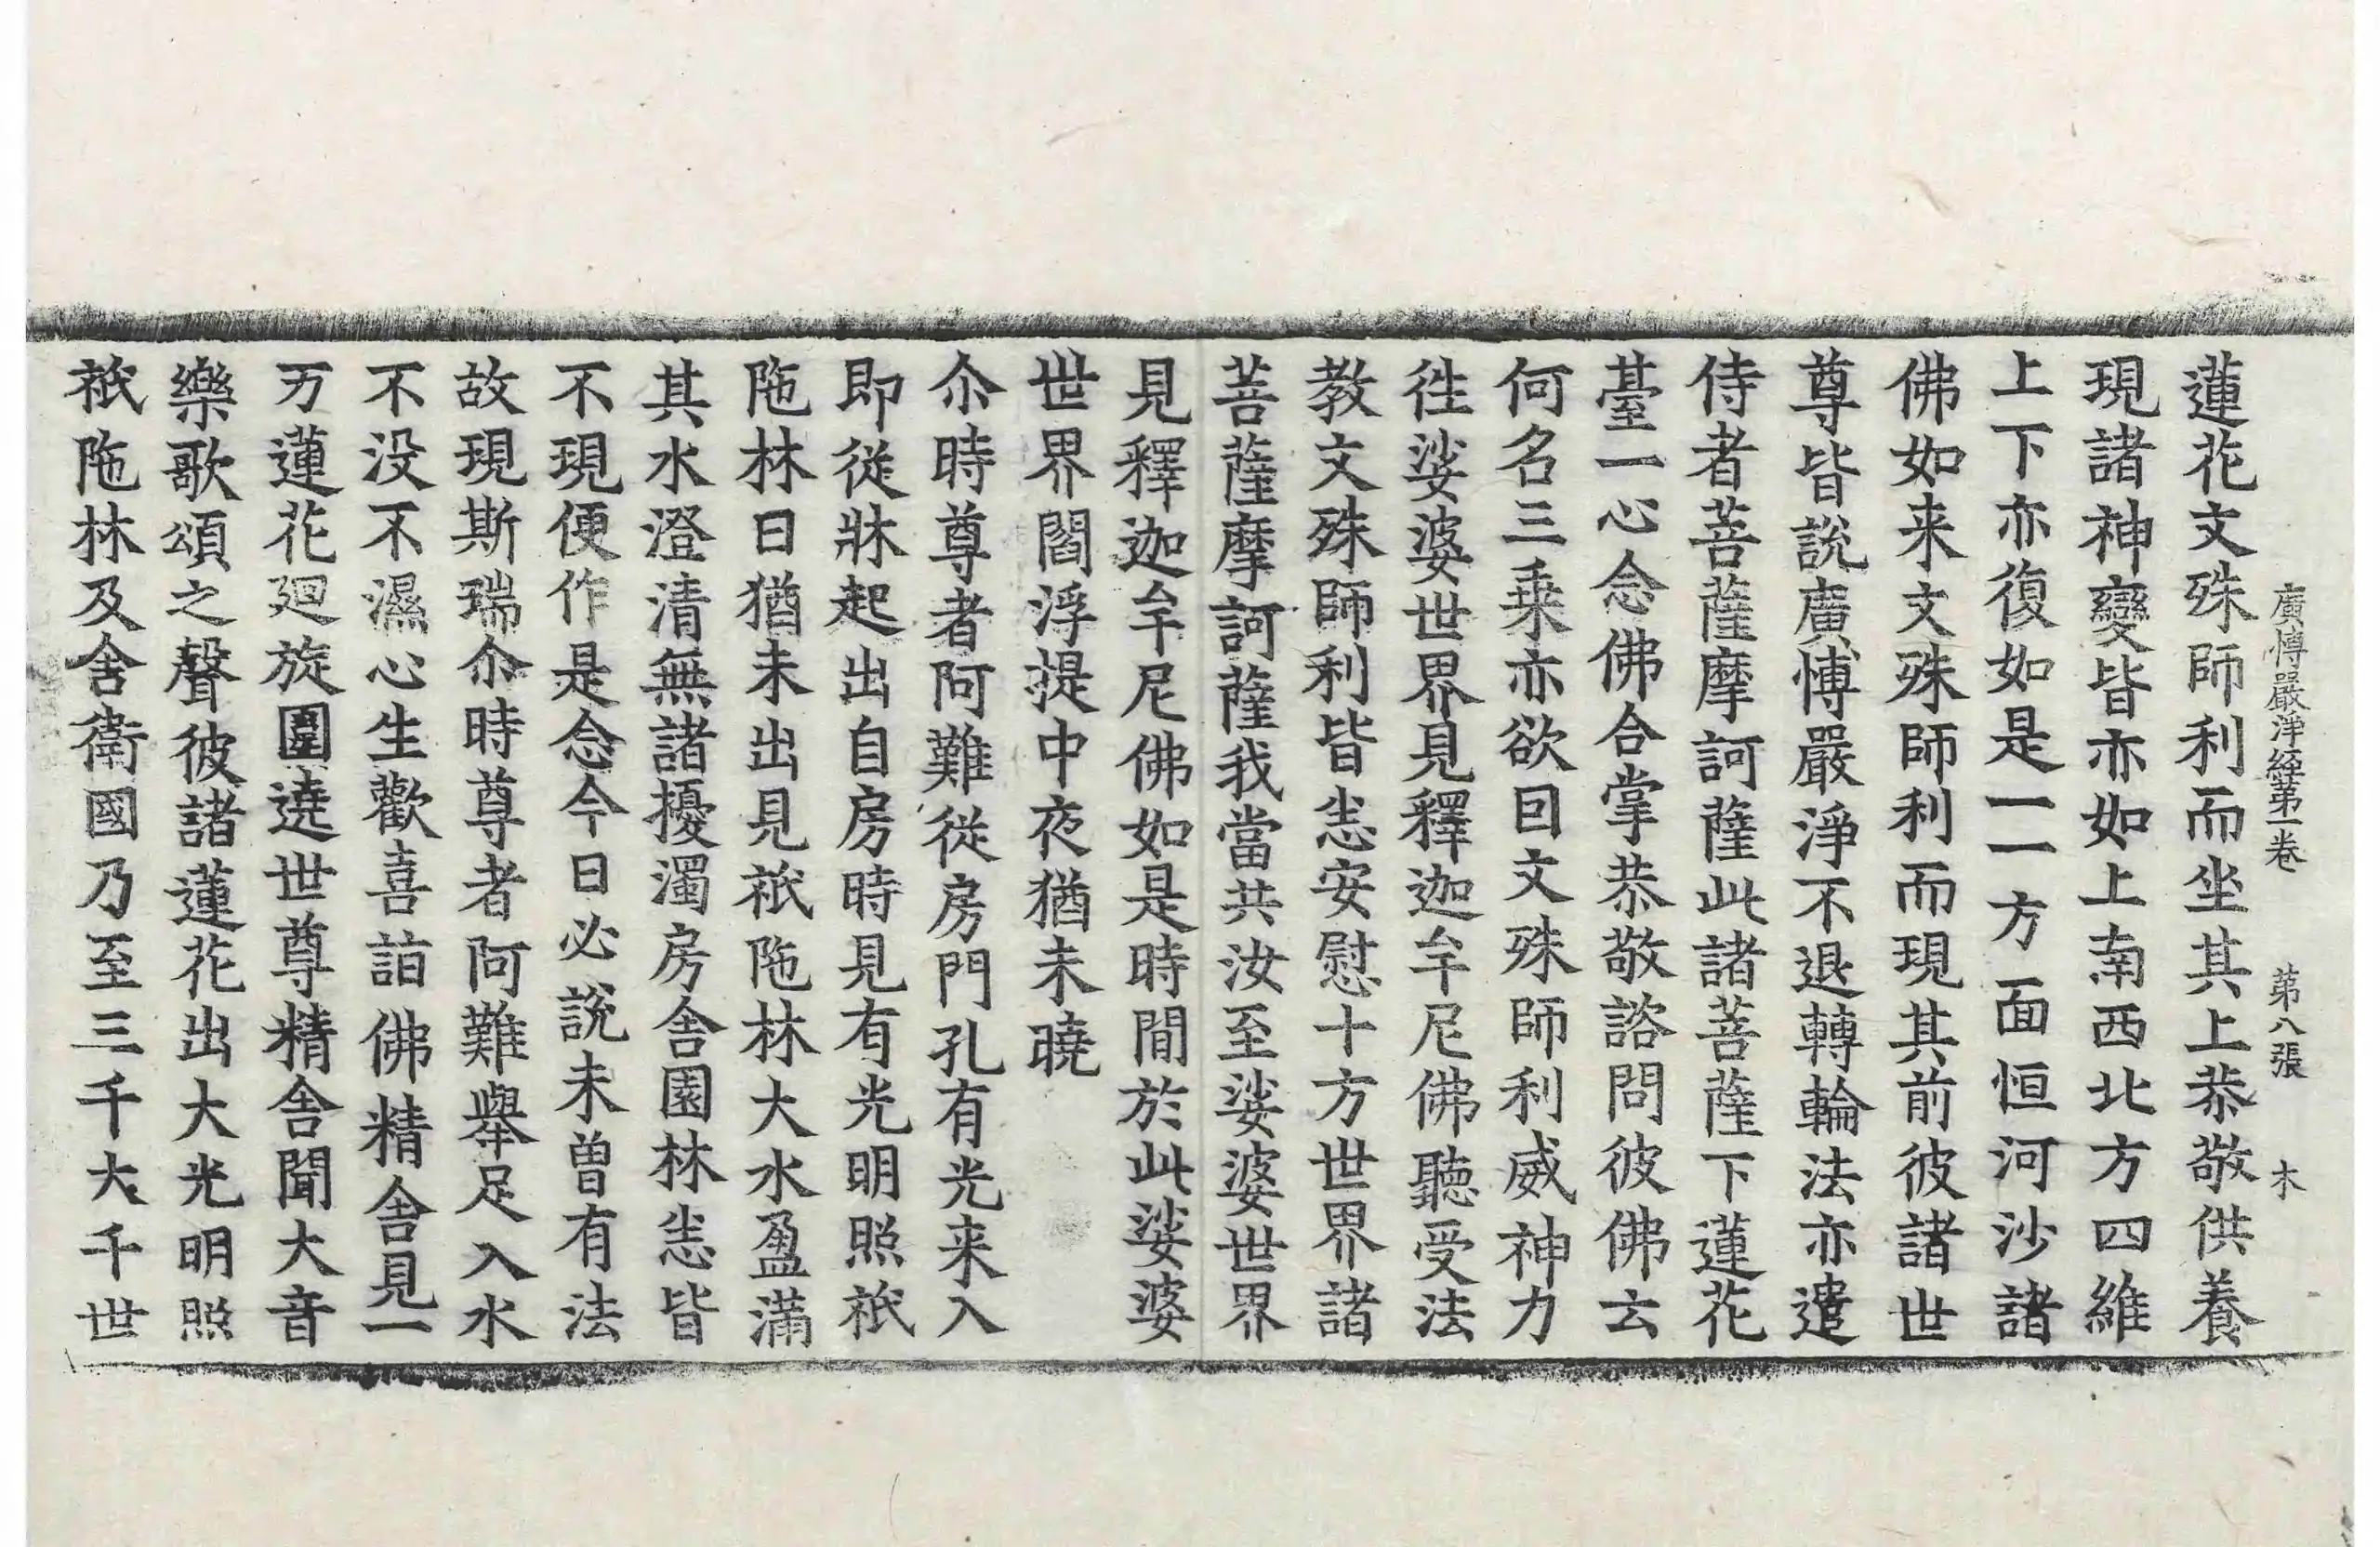 廣博嚴淨経苐一卷 苐八張 木
蓮花文殊師利而坐其上恭敬供養
現諸神變皆亦如上南西北方四維
上下亦復如是一一方面恒河沙諸
佛如来文殊師利而現其前彼諸世
尊皆說廣博嚴淨不退轉輪法亦遣
侍者菩薩摩訶薩此諸菩薩下蓮花
臺一心念佛合掌恭敬諮問彼佛云
何名三乗亦欲囙文殊師利威神力
徃娑婆世界見釋迦牟尼佛聽受法
教文殊師利皆悉安慰十方世界諸
菩薩摩訶薩我當共汝至娑婆世界
見釋迦牟尼佛如是時間於此娑婆
世界閻浮提中夜猶未曉
尒時尊者阿難従房門孔有光来入
即従牀起出自房時見有光明照祇
陁林日猶未出見祇陁林大水盈滿
其水澄清無諸擾濁房舍園林悉皆
不現便作是念今日必說未曾有法
故現斯瑞尒時尊者阿難舉足入水
不没不濕心生歡喜詣佛精舍見一
万蓮花廻旋圍遶世尊精舍聞大音
樂歌頌之聲彼諸蓮花出大光明照
祇陁林及舍衛國乃至三千大千世